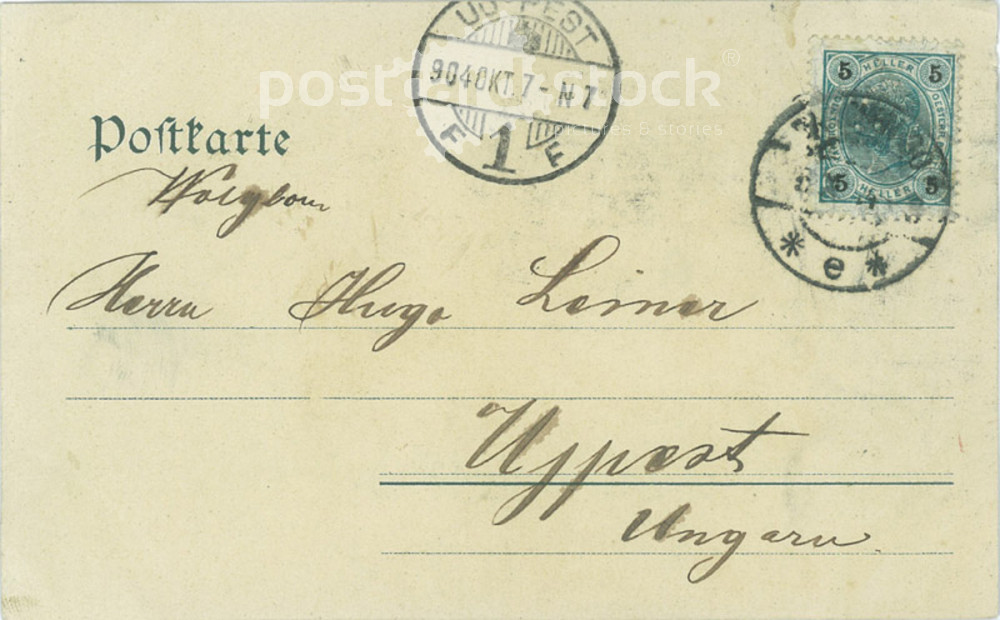 BUDAPEST
904 OKT. 7 - N 7
F 1 F
postcard stock
pictures & stories
5 HELLER 5
5 HELLER 5
* e *
Postkarte
Herrn Hugo Leimer
Ujpest
Ungarn